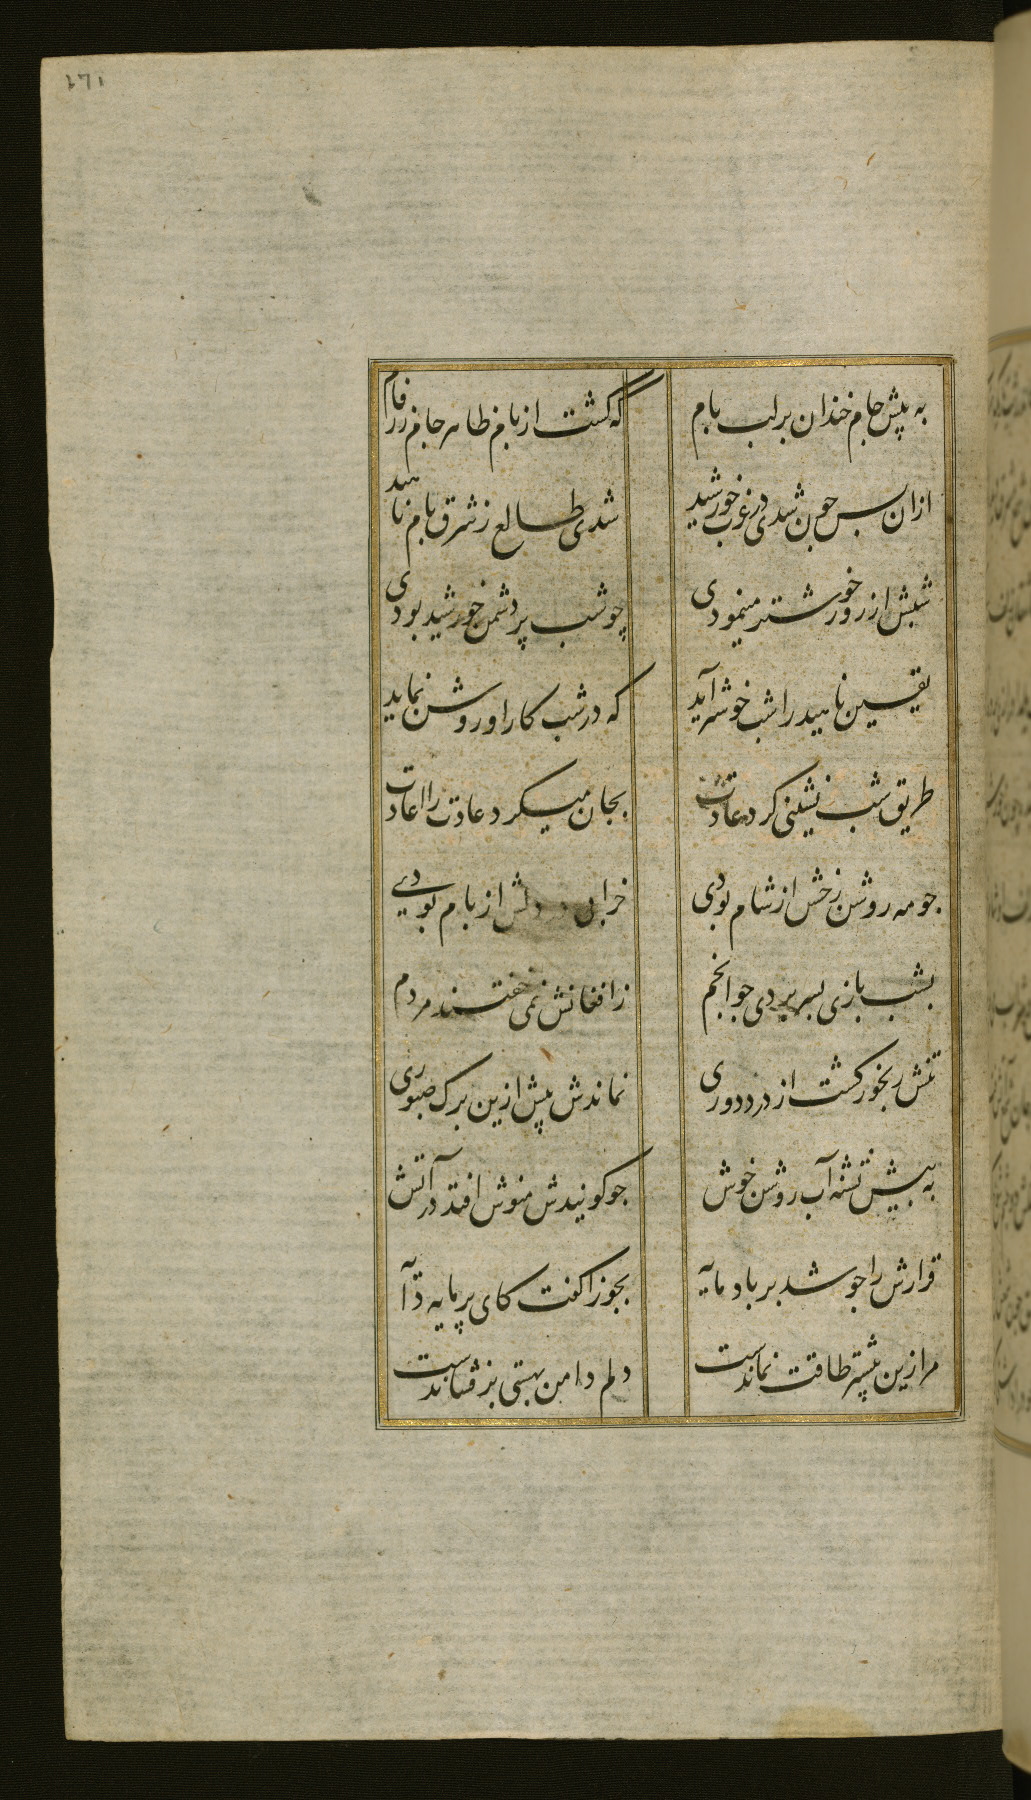 ١٧١
به پیش جام خندان بر لب بام
که گشت از بام ظاهر جام زرفام
ازان پس چون شدی در غرب خورشید
شدی طالع ز شرق بام ناهید
شبش از روز خوشتر مینمودی
چو شب پر دشمن خورشید بودی
یقین ناهید را شب خوشتر آید
که در شب کار او روشن نماید
طریق شب نشینی کرد عادت
بجان میکرد عادت را اعادت
چو مه روشن رخش از شام بودی
دلش از بام بودی
بشب بازی بسر بردی چو انجم
ز افغانش نمی خفتند مردم
تنش رنجور گشت از درد دوری
نماندش پیش ازین برگ صبوری
به پیش تشنه آب روشن خوش
چو گویندش منوش افتد در آتش
قرارش را چو شد بر باد مایه
بجوزا گفت کای پر مایه دآیه
مرا زین بیشتر طاقت نماندست
دلم دامن بهستی برفشاندست